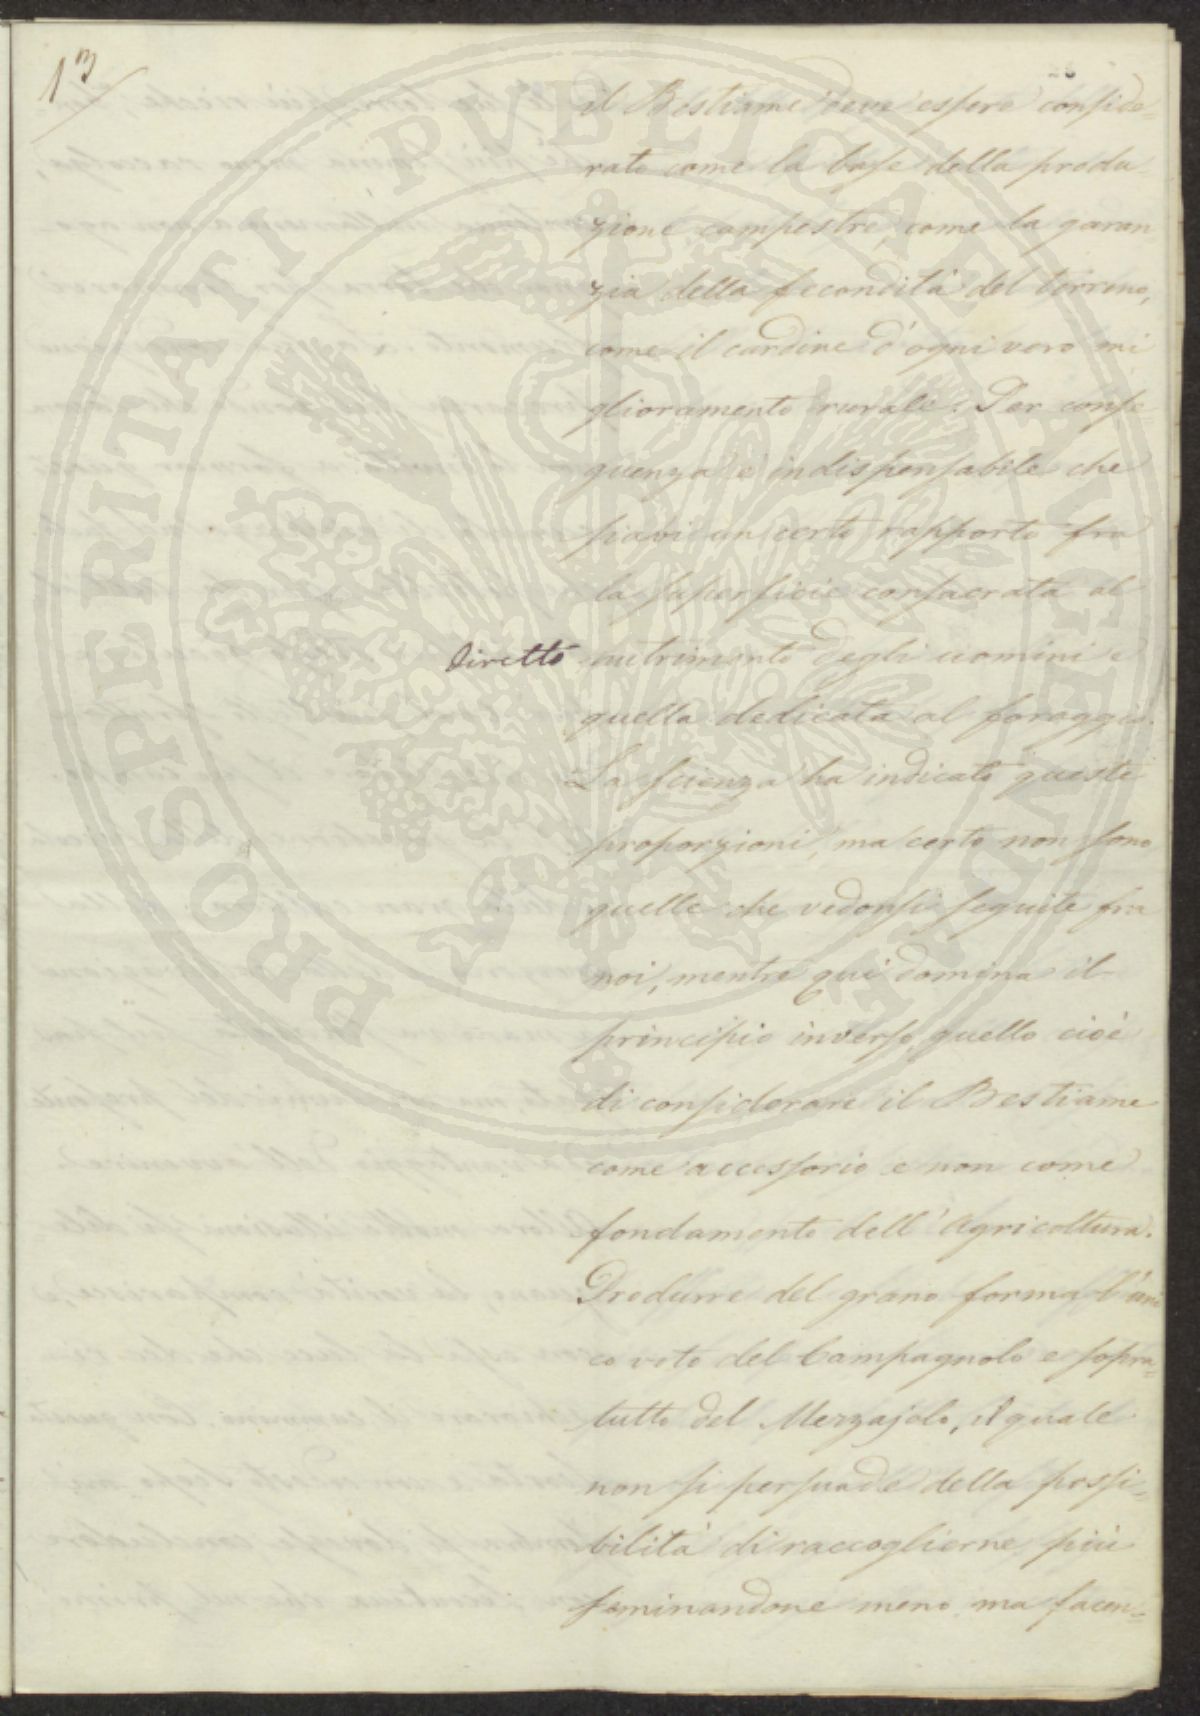 13
il Bestiame deve essere conside=
rato come la base della produ=
zione campestre, come la garan=
zia della fecondità del terreno,
come il cardine d'ogni vero mi
glioramento rurale. Per conse=
guenza è indispensabile che
siavi un certo rapporto fra
la superficie consacrata al
diretto nutrimento degli uomini e
quella dedicata al foraggio.
La scienza ha indicato queste
proporzioni, ma certo non sono
quelle che vedonsi seguite fra
noi, mentre qui domina il
principio inverso, quello cioè
di considerare il Bestiame
come accessorio e non come
fondamento dell'Agricoltura.
Produrre del grano forma l'uni
co voto del Campagnolo e sopra=
tutto del Mezzajolo, il quale
non si persuade della possi=
bilità di raccoglierne più
seminandone meno, ma facen=
PROSPERITATI PUBLICAE AUGENDAE